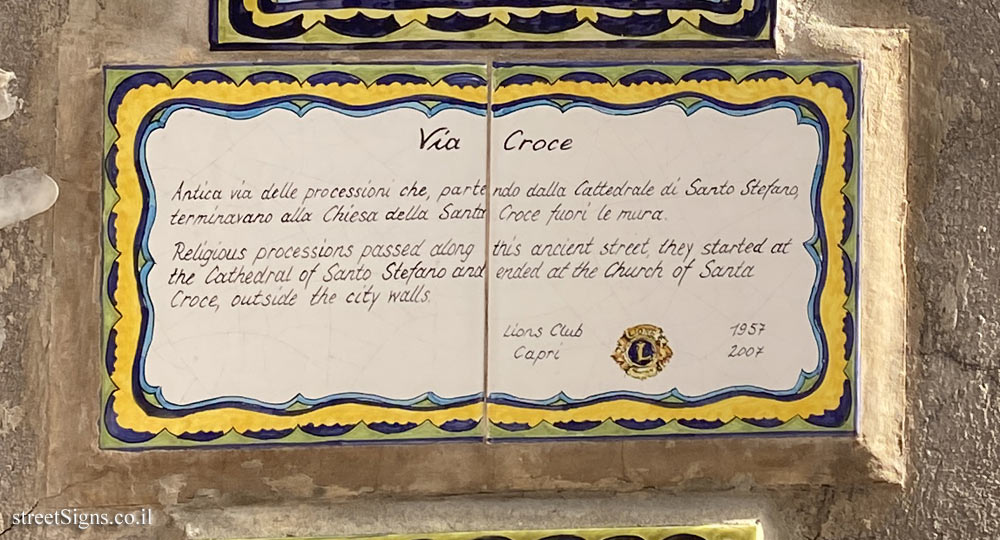 Via Croce
Antica via delle processioni che, partendo dalla Cattedrale di Santo Stefano,
terminavano alla Chiesa della Santa Croce fuori le mura.
Religious processions passed along this ancient street, they started at
the Cathedral of Santo Stefano and ended at the Church of Santa
Croce, outside the city walls.
Lions Club 1957
Capri 2007
LIONS
L
streetSigns.co.il